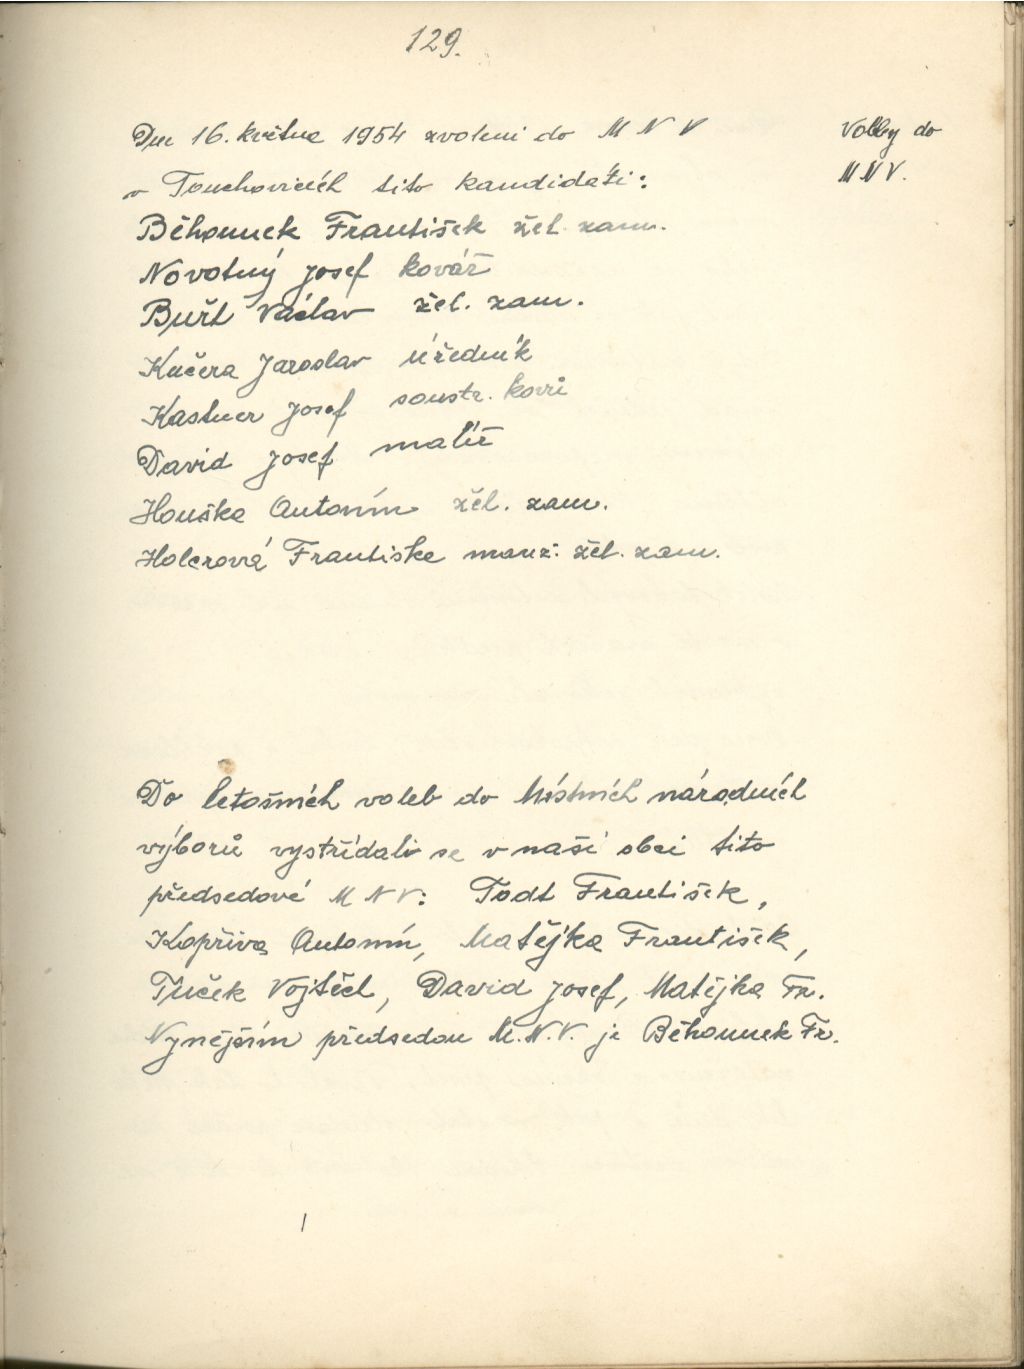 129.
Dne 16. května 1954 zvoleni do M N V
Volby do
M N V.
v Touchovicích tito kandidáti:
Běhounek František žel. zam.
Novotný Josef kovář
Buřt Václav žel. zam.
Kučera Jaroslav úředník
Kastner Josef soustr. kovů
David Josef malíř
Houška Antonín žel. zam.
Holerová Františka manž. žel. zam.
Do letošních voleb do Místních národních
výborů vystřídali se v naší obci tito
předsedové M N V: Todt František,
Kopřiva Antonín, Matějka František,
Tůček Vojtěch, David Josef, Matějka Fr.
Nynějším předsedou M.N.V. je Běhounek Fr.